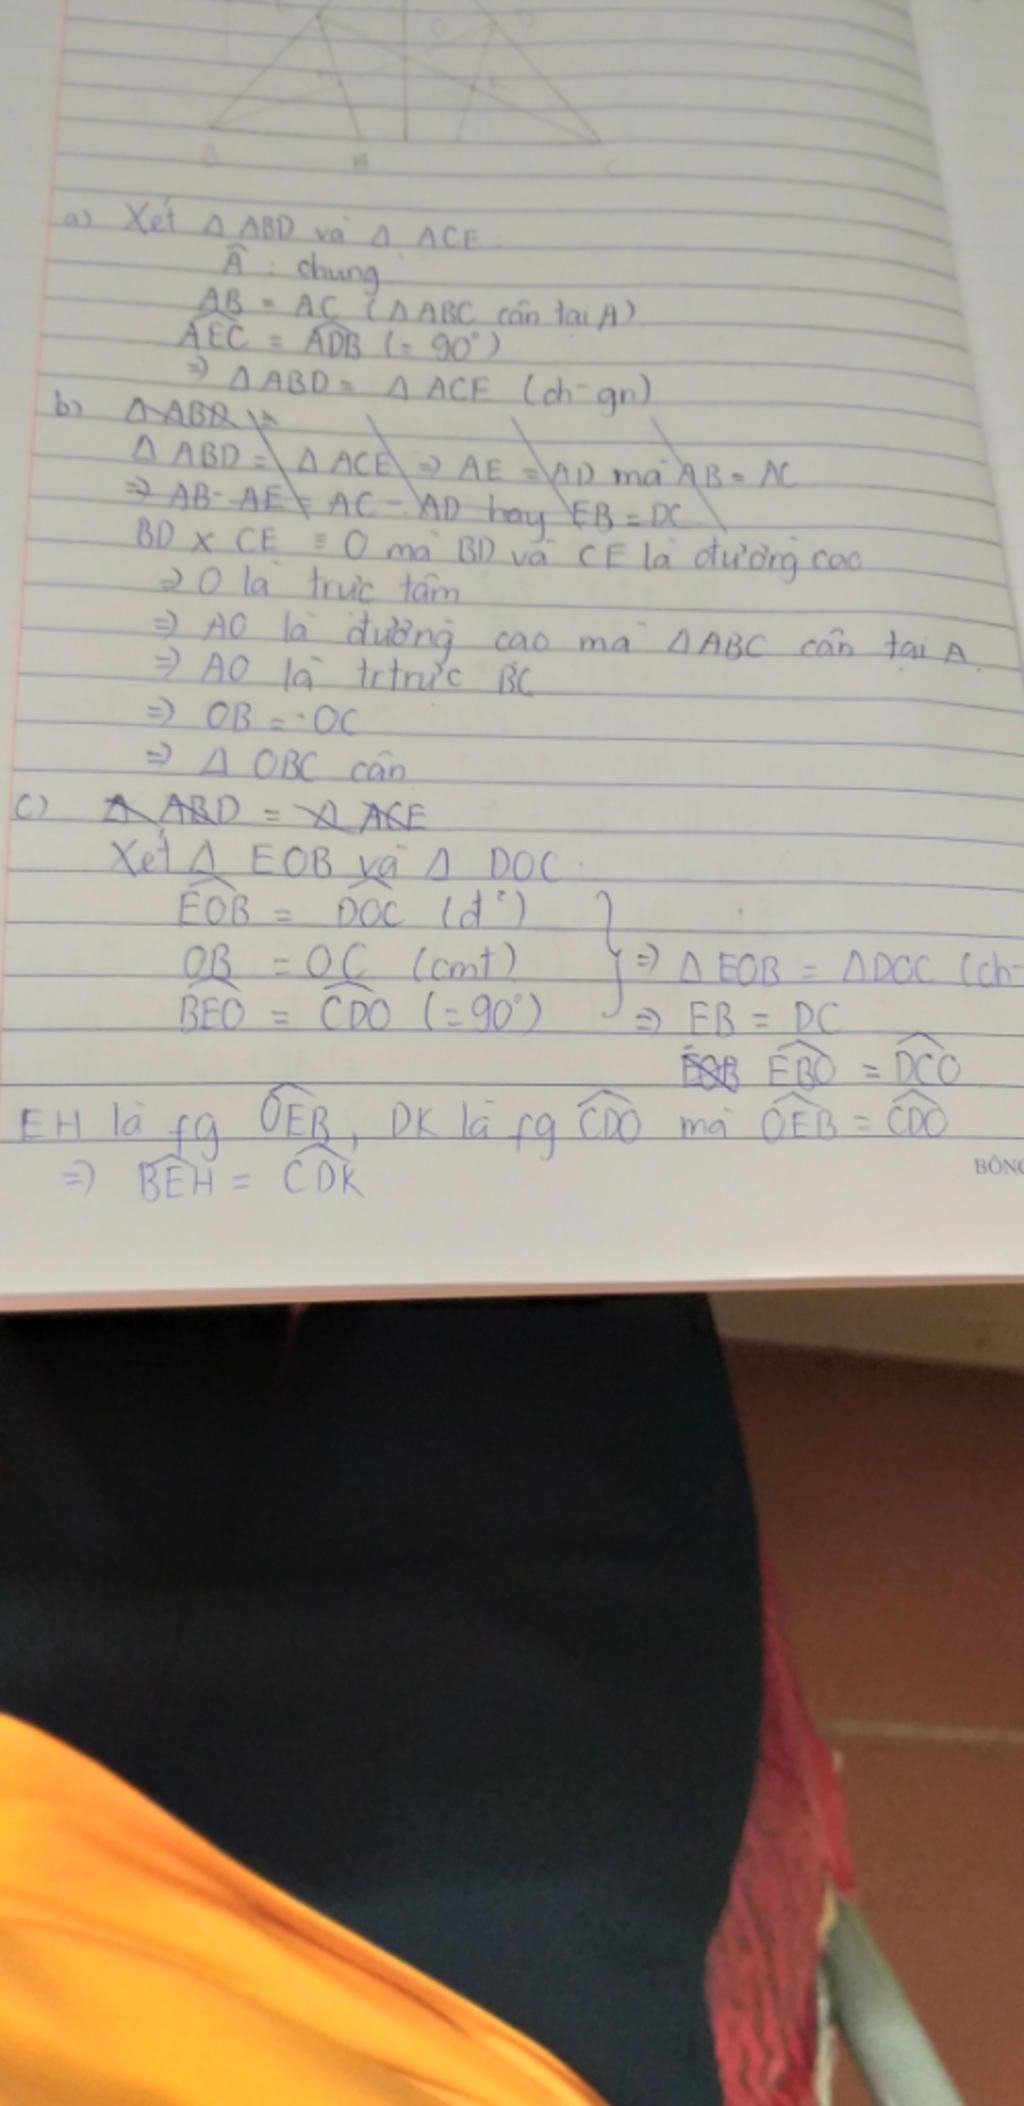 O D
B H C
a) Xét Δ ABD và Δ ACE
Â : chung
AB = AC (Δ ABC cân tại A)
AEC = ADB (= 90°)
⇒ Δ ABD = Δ ACE (ch-gn)
b) Δ ABD =
Δ ABD = Δ ACE ⇒ AE = AD mà AB = AC
⇒ AB - AE = AC - AD hay EB = DC
BD x CE ≡ O mà BD và CE là đường cao
⇒ O là trực tâm
⇒ AO là đường cao mà Δ ABC cân tại A
⇒ AO là trtrực BC
⇒ OB = OC
⇒ Δ OBC cân
c) Δ ABD = Δ ACE
Xét Δ EOB và Δ DOC :
EOB = DOC (đ²)
OB = OC (cmt) } ⇒ Δ EOB = Δ DOC (ch-
BEO = CDO (= 90°) ⇒ EB = DC
EBO = DCO
EH là fg OEB, DK là fg CDO mà OEB = CDO
⇒ BEH = CDK
BÔNG